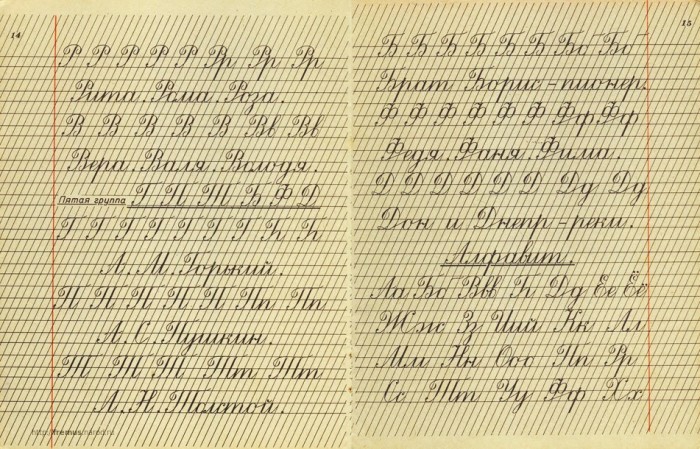 14
Р Р Р Р Р Р Рр Рр Рр
Рита. Рома. Роза.
В В В В В В Вв Вв
Вера. Валя. Володя.
Пятая группа Г П Т Б Ф Д
Г Г Г Г Г Г Г Гг Гг
А. М. Горький.
П П П П П П Пп Пп
А. С. Пушкин.
Т Т Т Т Тт Тт
Л. Н. Толстой.
http://fremus.narod.ru
15
Б Б Б Б Б Б Бб Бб
Брат Борис - пионер.
Ф Ф Ф Ф Ф Ф Ф Фф Фф
Федя. Фаня. Фима.
Д Д Д Д Д Д Дд Дд
Дон и Днепр - реки.
Алфавит.
Аа Бб Вв Гг Дд Ее Ёё
Жж Зз Ии й Кк Лл
Мм Нн Оо Пп Рр
Сс Тт Уу Фф Хх